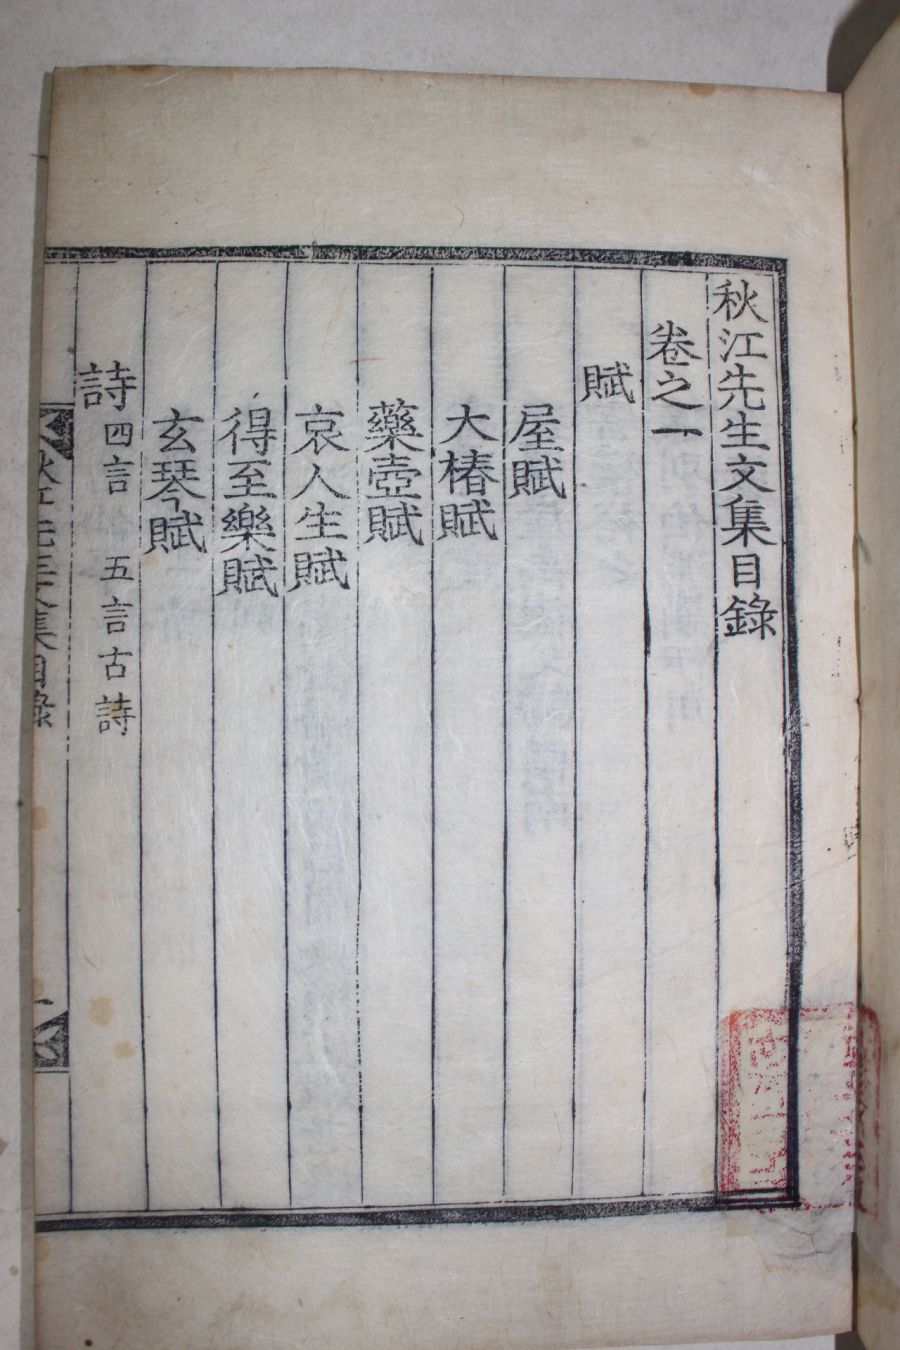 秋江先生文集目錄
卷之一
賦
屋賦
大椿賦
藥壺賦
哀人生賦
得至樂賦
玄琴賦
詩 四言 五言古詩
秋江先生文集目錄